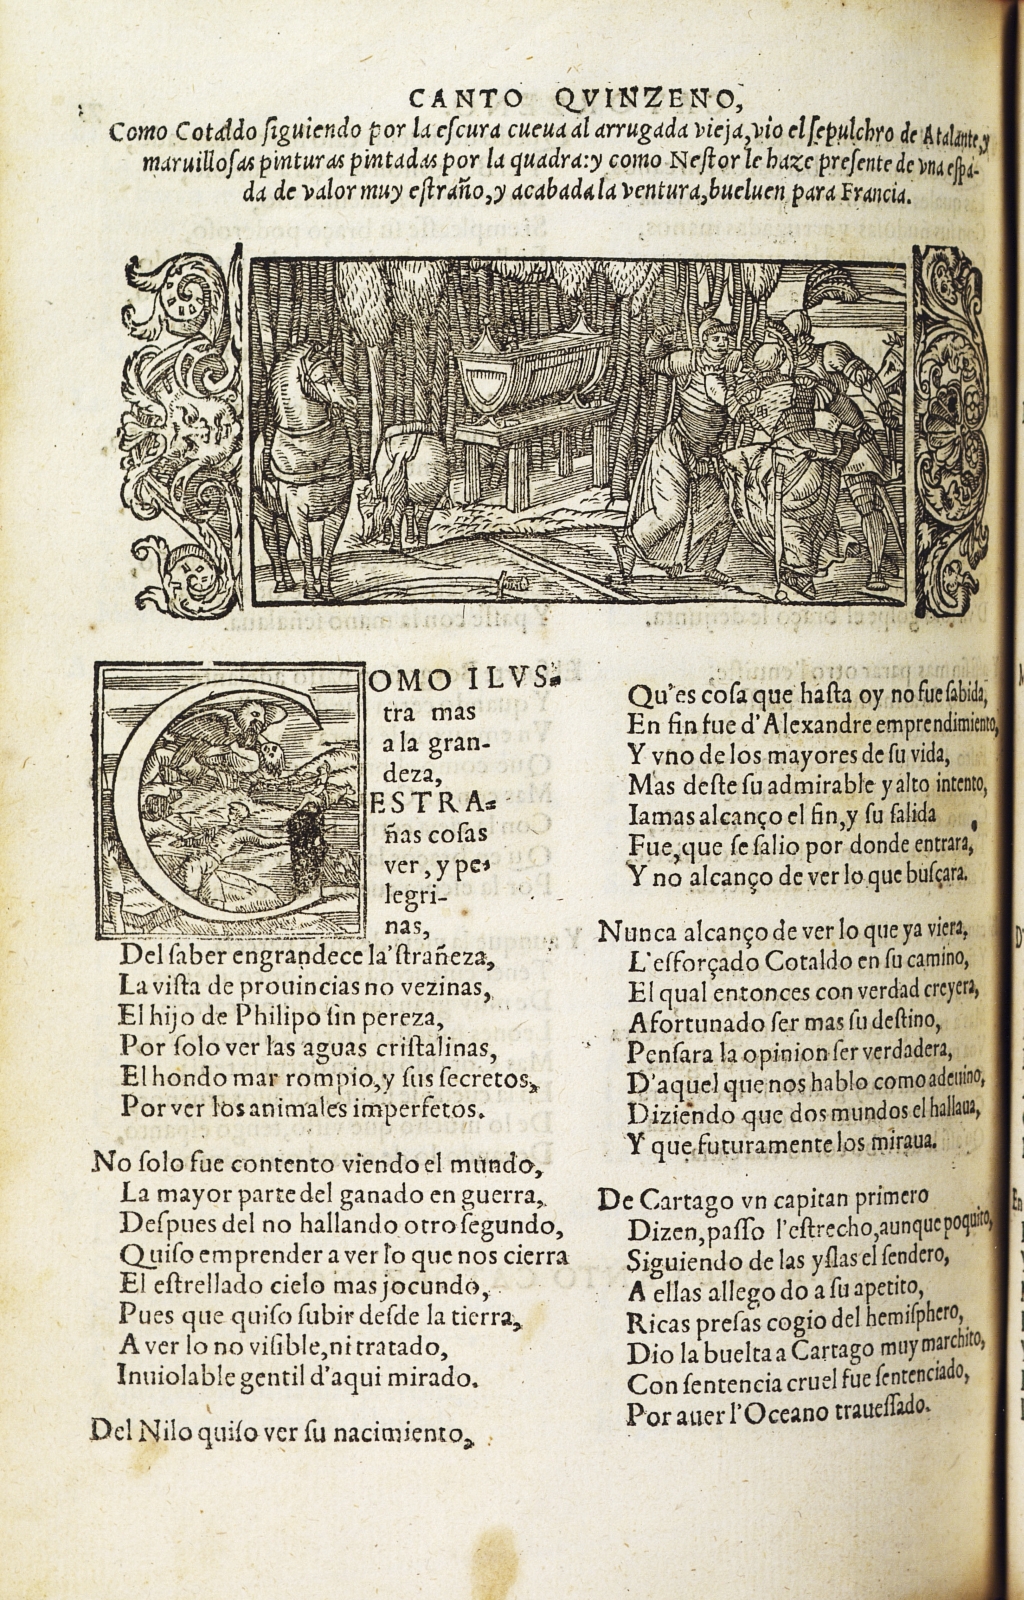 CANTO QVINZENO,
Como Cotaldo ſiguiendo por la eſcura cueua al arrugada vieja, vio el ſepulchro de Atalante, y
maruilloſas pinturas pintadas por la quadra: y como Neſtor le haze preſente de vna eſpa-
da de valor muy eſtraño, y acabada la ventura, bueluen para Francia.
COMO ILVS-
tra mas
a la gran-
deza,
ESTRA-
ñas coſas
ver, y pe-
legri-
nas,
Del ſaber engrandece la'ſtrañeza,
La viſta de prouincias no vezinas,
El hijo de Philipo ſin pereza,
Por ſolo ver las aguas criſtalinas,
El hondo mar rompio, y ſus ſecretos,
Por ver los animales imperfetos.
No ſolo fue contento viendo el mundo,
La mayor parte del ganado en guerra,
Deſpues del no hallando otro ſegundo,
Quiſo emprender a ver lo que nos cierra
El eſtrellado cielo mas jocundo,
Pues que quiſo ſubir deſde la tierra,
A ver lo no viſible, ni tratado,
Inuiolable gentil d'aqui mirado.
Del Nilo quiſo ver ſu nacimiento,
Qu'es coſa que haſta oy no fue ſabida,
En fin fue d'Alexandre emprendimiento,
Y vno de los mayores de ſu vida,
Mas deſte ſu admirable y alto intento,
Iamas alcanço el fin, y ſu ſalida
Fue, que ſe ſalio por donde entrara,
Y no alcanço de ver lo que buſcara.
Nunca alcanço de ver lo que ya viera,
L'esforçado Cotaldo en ſu camino,
El qual entonces con verdad creyera,
Afortunado ſer mas ſu deſtino,
Penſara la opinion ſer verdadera,
D'aquel que nos hablo como adeuino,
Diziendo que dos mundos el hallaua,
Y que futuramente los miraua.
De Cartago vn capitan primero
Dizen, paſſo l'eſtrecho, aunque poquito,
Siguiendo de las yſlas el ſendero,
A ellas allego do a ſu apetito,
Ricas preſas cogio del hemiſphero,
Dio la buelta a Cartago muy marchito,
Con ſentencia cruel fue ſentenciado,
Por auer l'Oceano traueſſado.